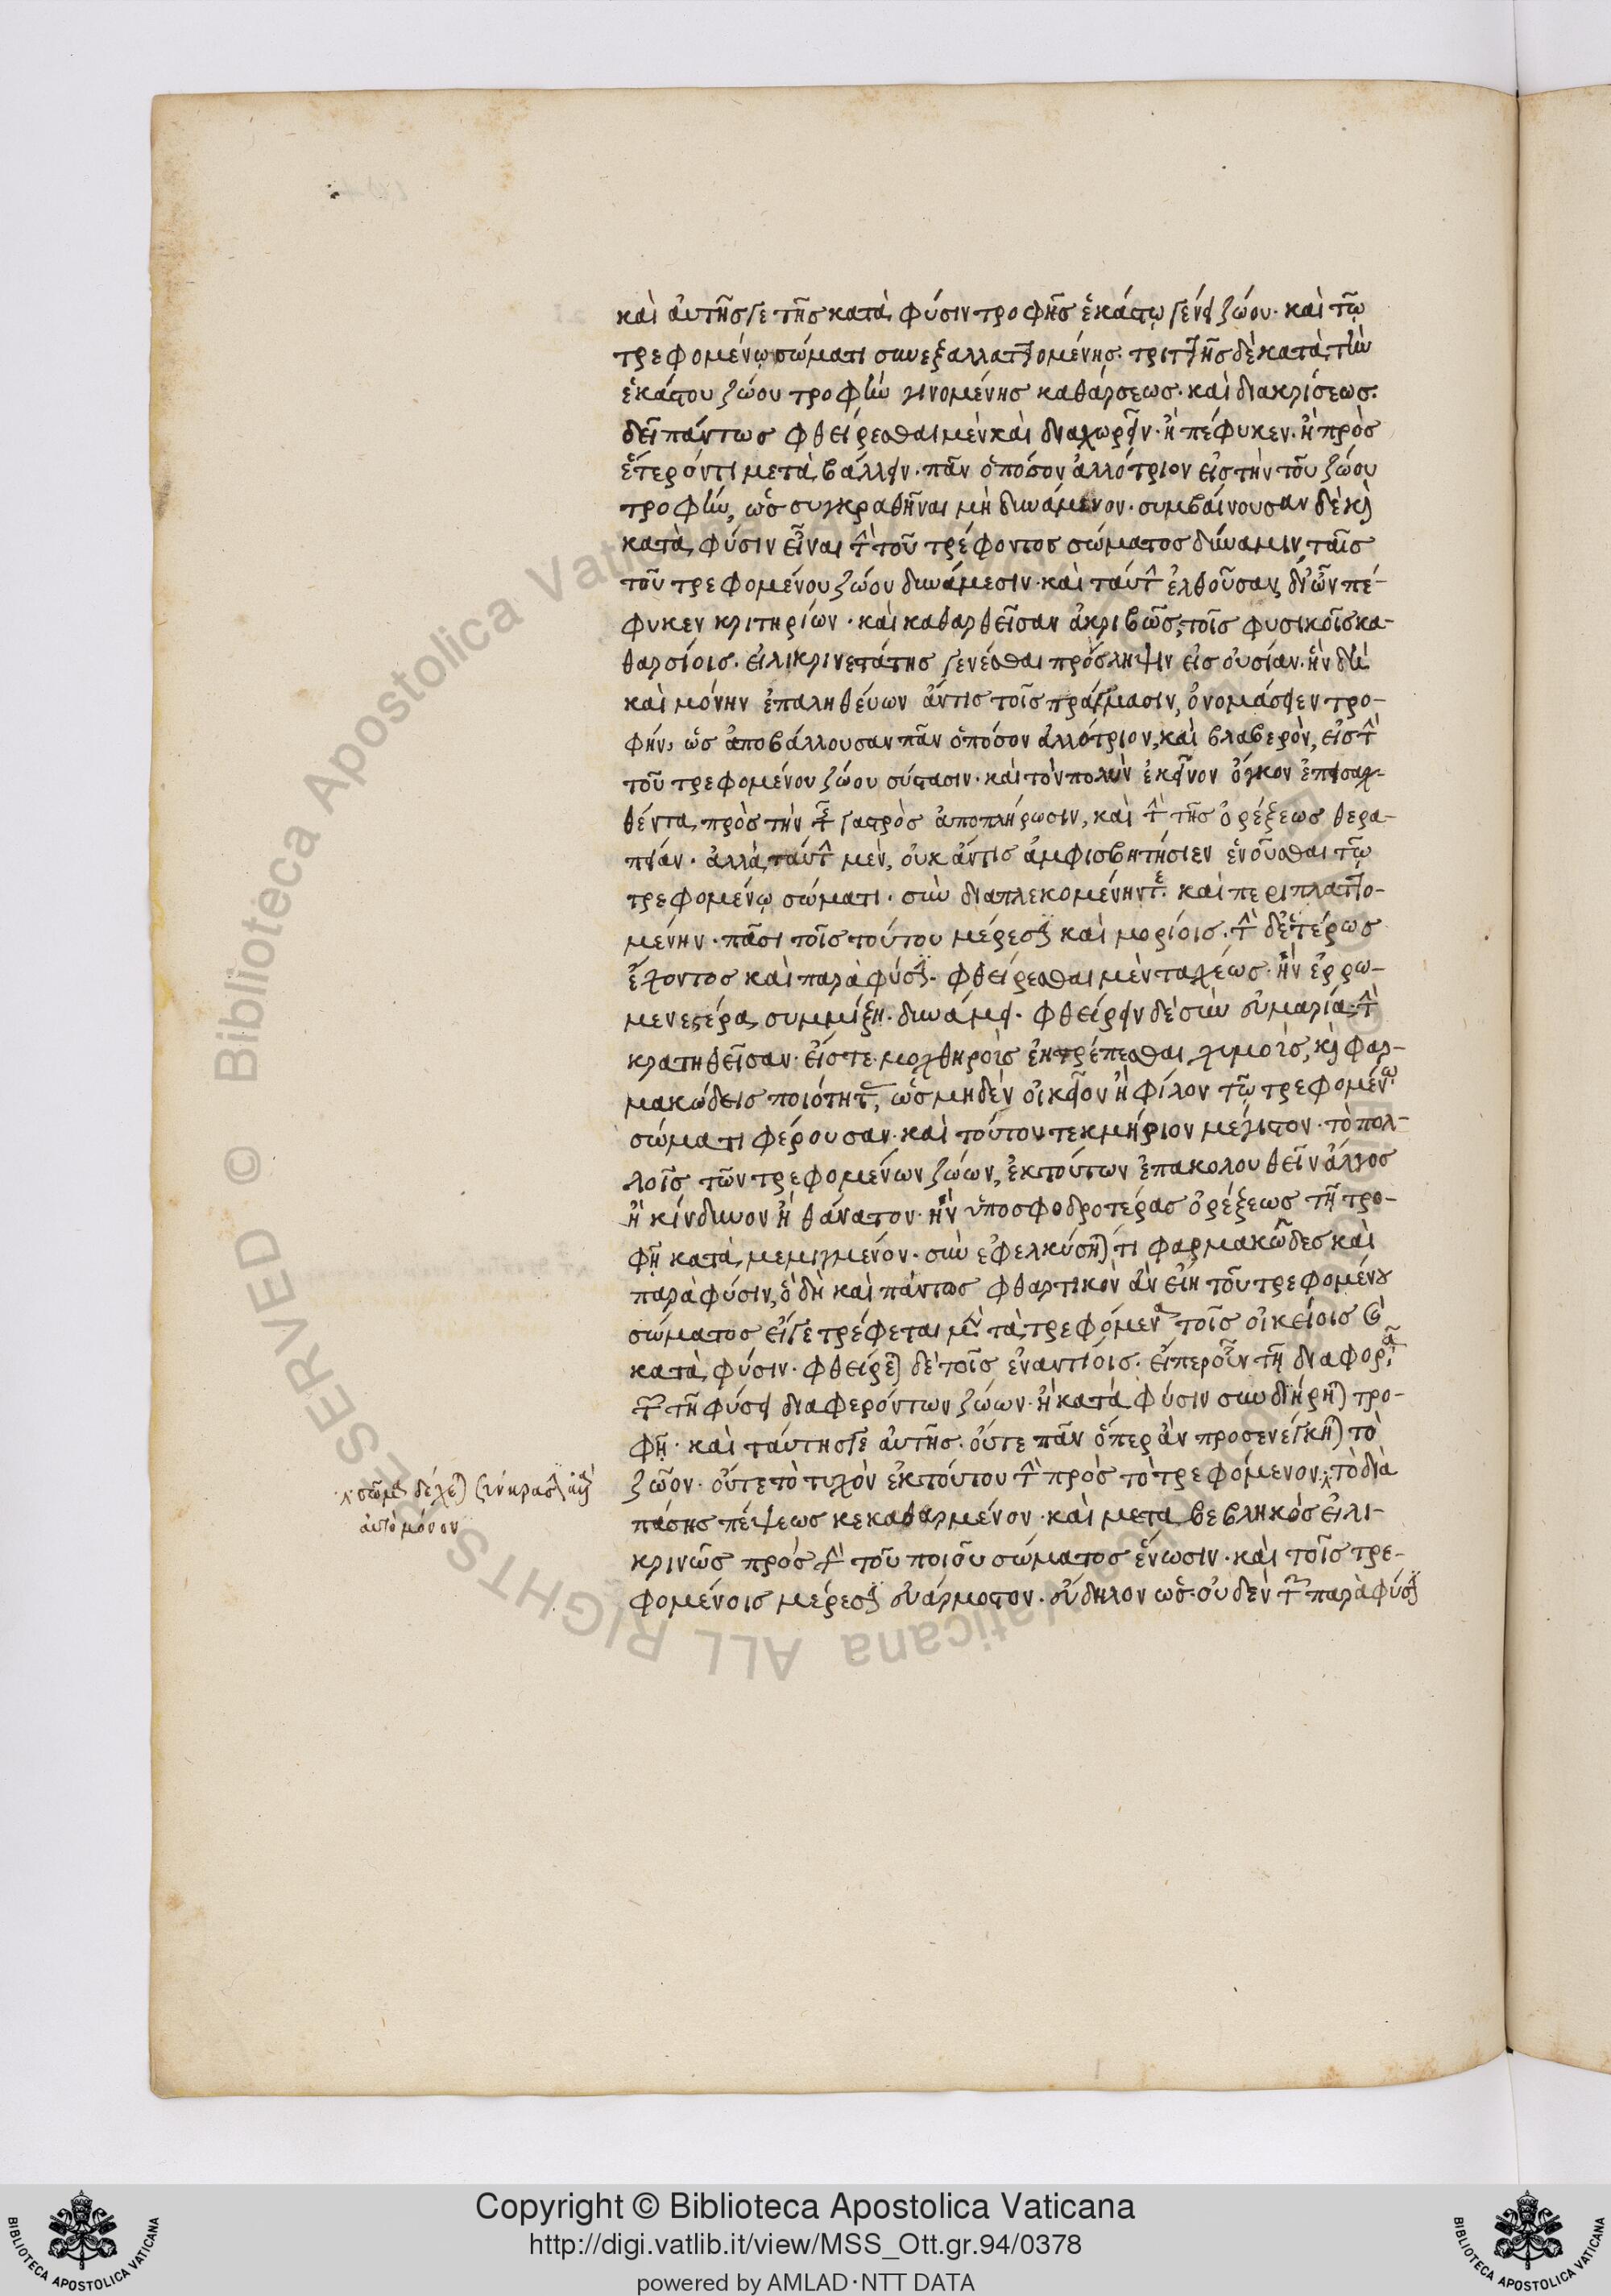 καὶ αὐτῆς γε τῆς κατὰ φύσιν τροφῆς ἑκάστῳ γένει ζώου· καὶ τῷ
τρεφομένῳ σώματι συνεξαλλαττομένης· τριττῆς δὲ κατὰ τὴν
ἑκάστου ζώου τροφὴν γινομένης καθάρσεως· καὶ διακρίσεως·
δεῖ πάντως φθείρεσθαι μὲν καὶ διαχωρεῖν· ἢ πέφυκεν· ἢ πρὸς
ἕτερόν τι μεταβάλλειν· πᾶν ὁπόσον ἀλλότριον εἰς τὴν τοῦ ζώου
τροφήν, ὡς συγκραθῆναι μὴ δυνάμενον· συμβαίνουσαν δὲ καὶ
κατὰ φύσιν εἶναι τὴν τοῦ τρέφοντος σώματος δύναμιν ταῖς
τοῦ τρεφομένου ζώου δυνάμεσιν· καὶ ταύτην ἐλθοῦσαν, δι' ὧν πέ-
φυκεν κριτηρίων· καὶ καθαρθεῖσαν ἀκριβῶς, τοῖς φυσικοῖς κα-
θαρσίοις· εἰλικρινεστάτης γενέσθαι πρόσληψιν εἰς οὐσίαν· ἣν δὴ
καὶ μόνην ἐπαληθεύων ἄν τις τοῖς πράγμασιν, ὀνομάσειεν τρο-
φήν, ὡς ἀποβάλλουσαν πᾶν ὁπόσον ἀλλότριον, καὶ βλαβερὸν, εἰς τὴν
τοῦ τρεφομένου ζώου σύστασιν· καὶ τὸν πολὺν ἐκεῖνον ὄγκον ἐπεισαχ-
θέντα, πρὸς τὴν τῆς γαστρὸς ἀποπλήρωσιν, καὶ τὴν τῆς ὀρέξεως θερα-
πείαν· ἀλλὰ ταύτην μὲν, οὐκ ἄν τις ἀμφισβητήσειεν ἑνοῦσθαι τῷ
τρεφομένῳ σώματι· συνδιαπλεκομένην τε· καὶ περιπλαττο-
μένην· πᾶσι τοῖς τούτου μέρεσι καὶ μορίοις· τὴν δὲ ἑτέρως
ἔχοντος καὶ παρὰ φύσιν· φθείρεσθαι μὲν ταχέως· ἢν ἐρρω-
μενεστέρα συμμίξῃ· δυνάμει· φθείρειν δὲ σὺν εὐμαρίᾳ τὴν
κρατηθεῖσαν· εἴς τε μοχθηροῖς ἐκτρέπεσθαι χυμοῖς, καὶ φαρ-
μακώδεις ποιότητας, ὡς μηδὲν οἰκεῖον ἢ φίλον τῷ τρεφομένῳ
σώματι φέρουσαν· καὶ τούτου τεκμήριον μέγιστον· τὸ πολ-
λοῖς τῶν τρεφομένων ζώων, ἐκ τούτων ἐπακολουθεῖν ἄλγος
ἢ κίνδυνον ἢ θάνατον· ἢν ὑπὸ σφοδροτέρας ὀρέξεως τῇ τρο-
φῇ καταμεμιγμένον· συνεφελκύσηταί τι φαρμακῶδες καὶ
παρὰ φύσιν, ὃ δὴ καὶ πάντως φθαρτικὸν ἂν εἴη τοῦ τρεφομένου
σώματος εἴ γε τρέφεται μὲν τὰ τρεφόμενα τοῖς οἰκείοις καὶ
κατὰ φύσιν· φθείρεται δὲ τοῖς ἐναντίοις· εἴπερ οὖν τῇ διαφορᾷ
τῶν τῇ φύσει διαφερόντων ζώων· ἡ κατὰ φύσιν συνδιῄρηται τρο-
φή· καὶ ταύτης γε αὐτῆς· οὔτε πᾶν ὅπερ ἂν προσενέγκηται τὸ
ζῶον· οὔτε τὸ τυχὸν ἐκ τούτου τὴν πρὸς τὸ τρεφόμενον τὸ διὰ
σῶμα δέχεται σύγκρασιν ἀλλ'
αὐτὸ μόνον
πάσης πέψεως κεκαθαρμένον· καὶ μεταβεβληκὸς εἰλι-
κρινῶς πρὸς τὴν τοῦ ποιοῦ σώματος ἕνωσιν· καὶ τοῖς τρε-
φομένοις μέρεσιν εὐάρμοστον· εὔδηλον ὡς οὐδὲν τῶν παρὰ φύσιν
Copyright © Biblioteca Apostolica Vaticana
http://digi.vatlib.it/view/MSS_Ott.gr.94/0378
powered by AMLAD·NTT DATA